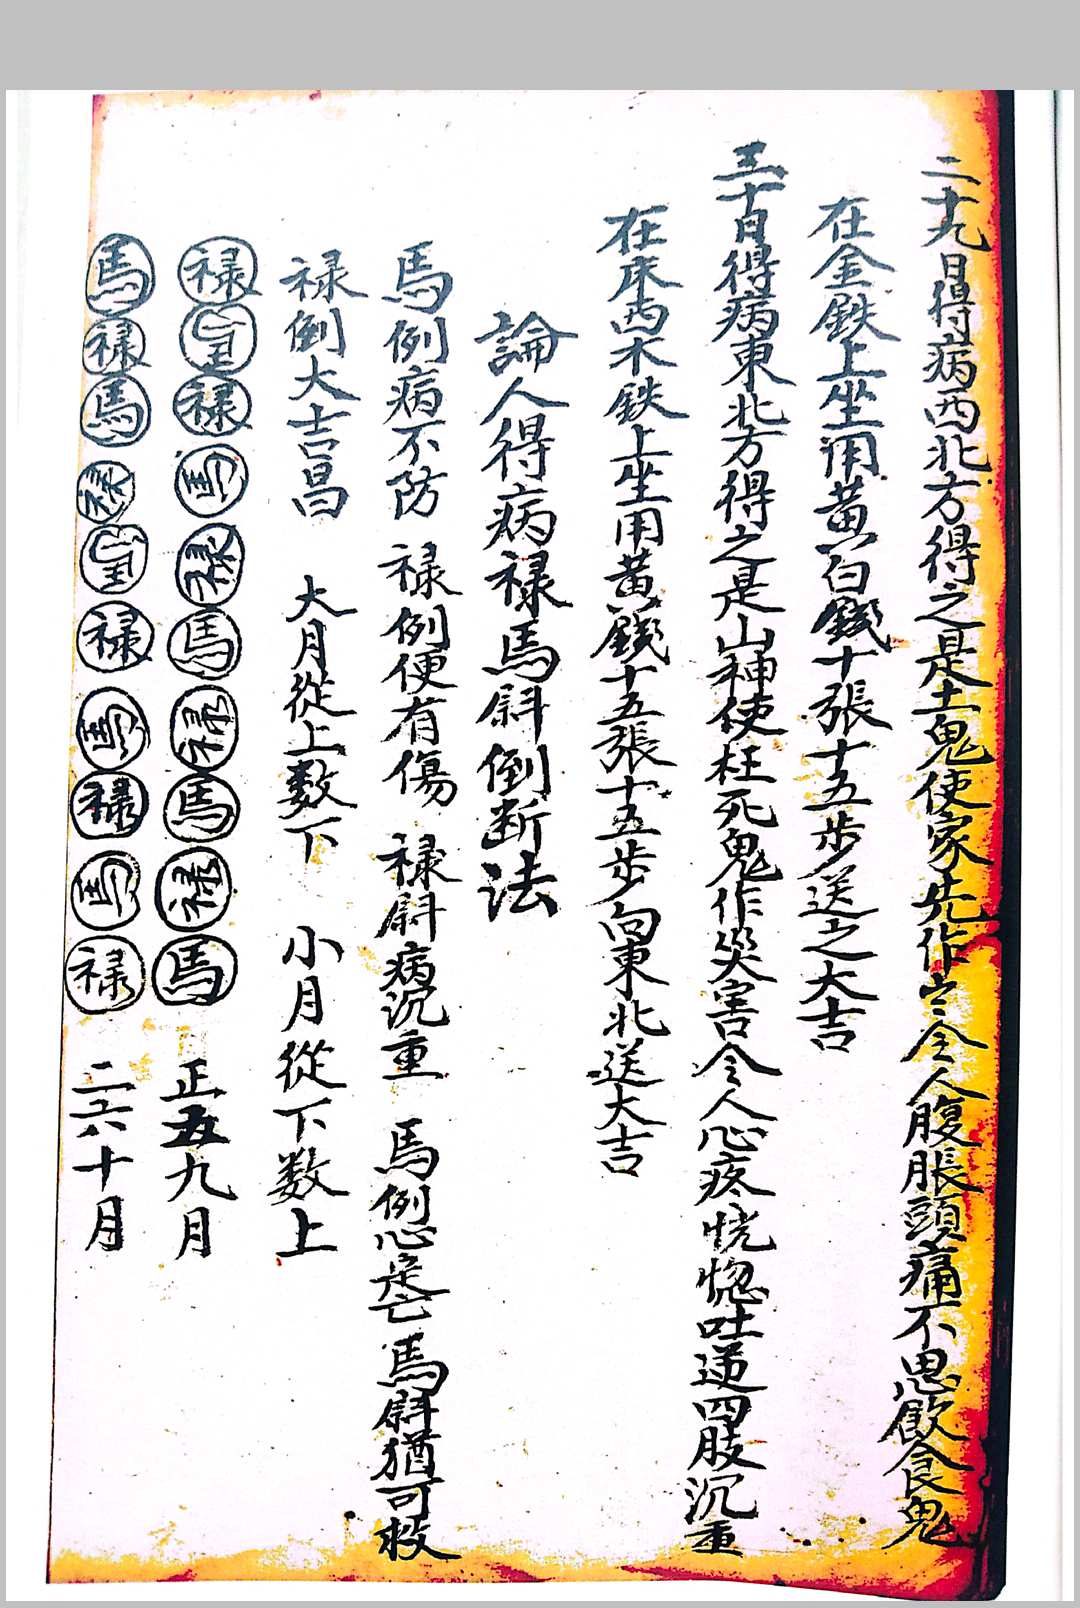 二十九日得病西北方得之是土鬼使家先作亡令人腹脹頭痛不思飲食鬼
在金鉄上坐用黃白錢十張十五步送之大吉
三十日得病東北方得之是山神使枉死鬼作災害令人心疼恍惚吐逆四肢沉重
在床西木鉄上坐用黃錢十五張十五步向東北送大吉
論人得病禄馬斜倒断法
馬例病不防 禄例便有傷 禄斜病沉重 馬例心是亡 馬斜猶可救
禄倒大吉昌 大月從上數下 小月從下数上
禄馬禄馬禄馬禄馬禄馬 正五九月
馬禄馬禄馬禄馬禄馬禄 二六十月